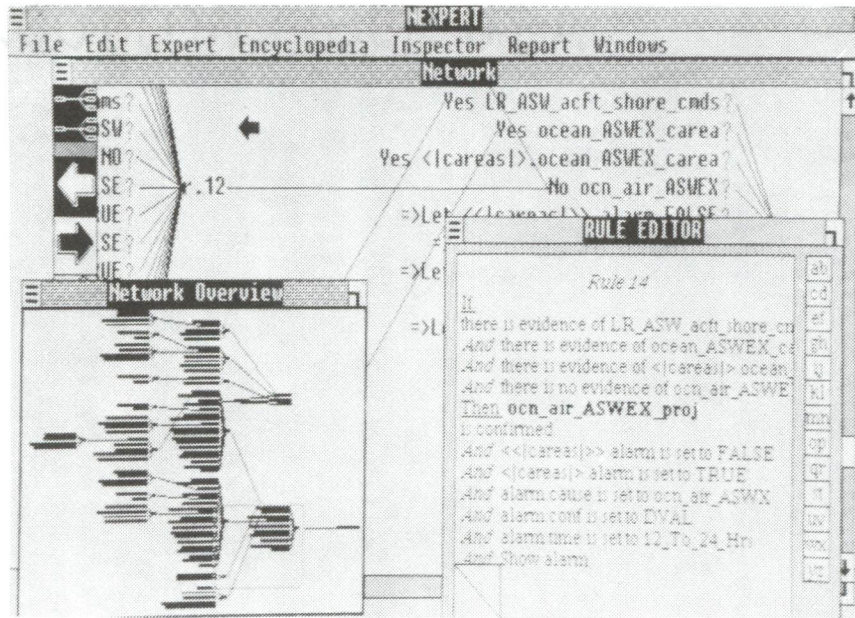 NEXPERT
File Edit Expert Encyclopedia Inspector Report Windows
Network
ms? Yes LR_ASW_acft_shore_cmds?
SW? Yes ocean_ASWEX_carea?
NO? Yes <|careas|>.ocean_ASWEX_carea?
SE? r.12 No ocn_air_ASWEX?
UE? =>Let <<|careas|>>.alarm FALSE?
SE? =
UE? =>Le
=>L
RULE EDITOR
Rule 14
If
there is evidence of LR_ASW_acft_shore_cm
And there is evidence of ocean_ASWEX_ca
And there is evidence of <|careas|> ocean_
And there is no evidence of ocn_air_ASWE
Then ocn_air_ASWEX_proj
is confirmed
And <<|careas|>> alarm is set to FALSE
And <|careas|> alarm is set to TRUE
And alarm.cause is set to ocn_air_ASWX
And alarm.conf is set to DVAL
And alarm.time is set to 12_To_24_Hrs
And Show alarm
ab
cd
ef
gh
ij
kl
mn
op
qr
st
uv
wx
yz
Network Overview